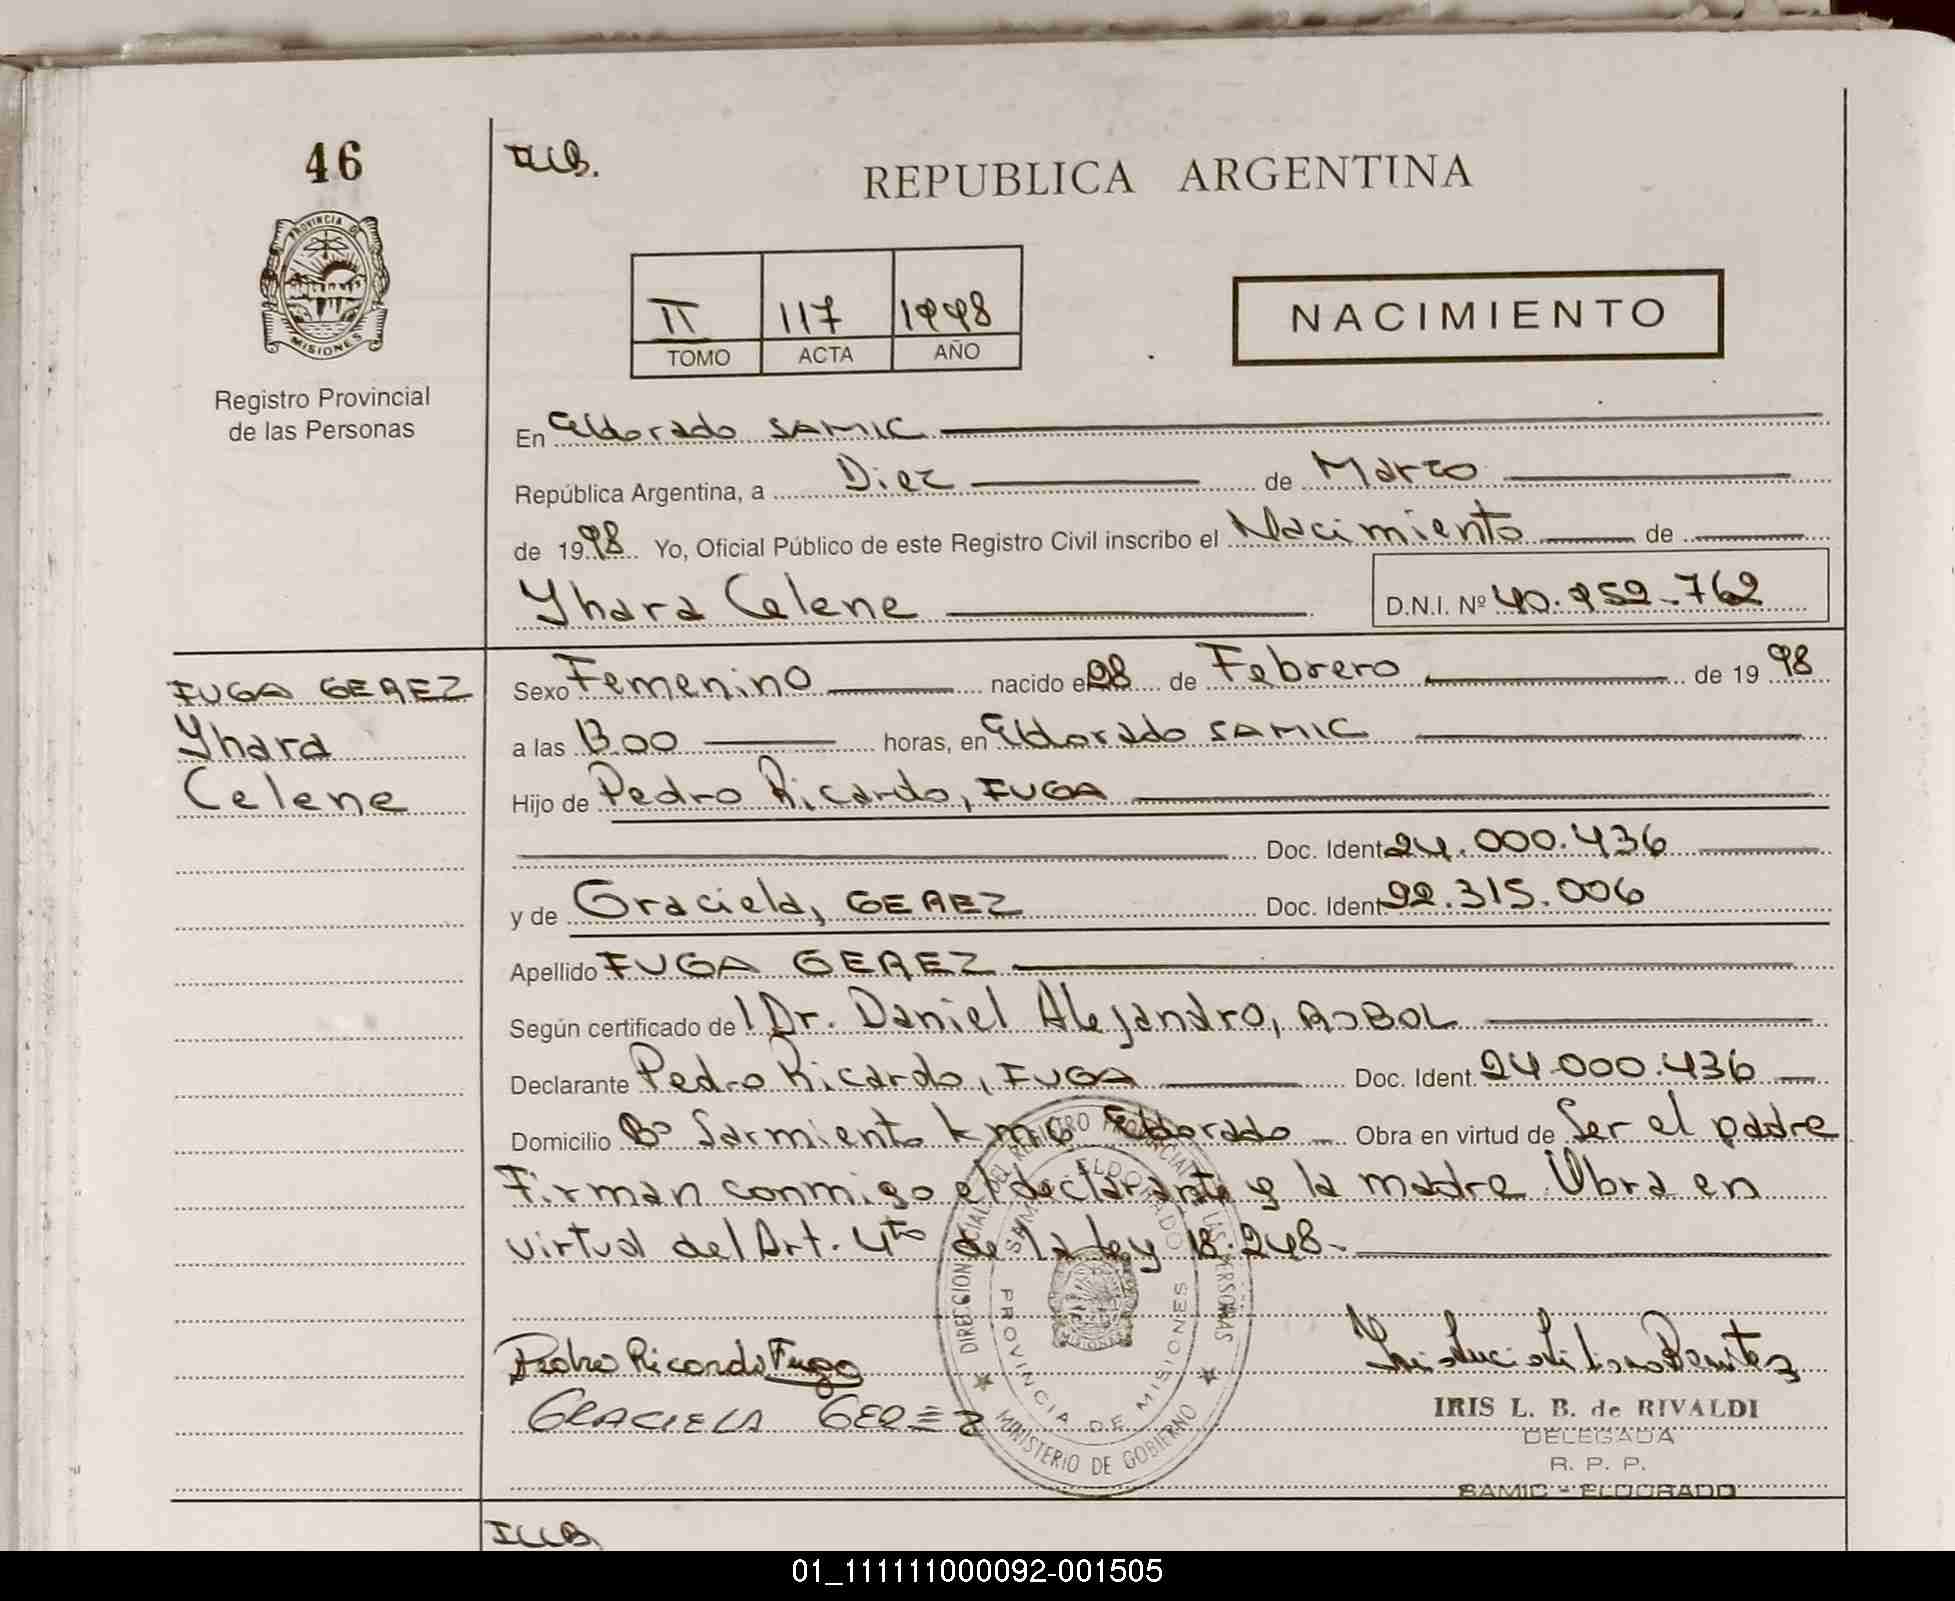 46
ILLB.
REPUBLICA ARGENTINA
PROVINCIA DE
MISIONES
Registro Provincial
de las Personas
II 117 1998
TOMO ACTA AÑO
NACIMIENTO
En Eldorado SAMIC
República Argentina, a Diez de Marzo
de 1998 Yo, Oficial Público de este Registro Civil inscribo el Nacimiento de
Yhara Celene D.N.I. Nº 40.952.762
FUGA GEREZ
Yhara
Celene
Sexo Femenino nacido el 28 de Febrero de 19 98
a las 13.00 horas, en Eldorado SAMIC
Hijo de Pedro Ricardo, FUGA
Doc. Ident. 24.000.436
y de Graciela, GEREZ Doc. Ident. 92.315.006
Apellido FUGA GEREZ
Según certificado del Dr. Daniel Alejandro,
Declarante Pedro Ricardo, FUGA Doc. Ident. 24.000.436
Domicilio Bº Sarmiento km 6 Eldorado Obra en virtud de Ser el padre
Firman conmigo el declarante y la madre. Obra en
virtud del Art. 4to de la ley 18.248.
DIRECCION REGISTRO PROVINCIAL DE LAS PERSONAS
SAMIC ELDORADO
PROVINCIA DE MISIONES
MINISTERIO DE GOBIERNO
Pedro Ricardo Fuga
GRACIELA GEREZ
IRIS L. B. de RIVALDI
DELEGADA
R. P. P.
SAMIC - ELDORADO
ILLB
01_111111000092-001505